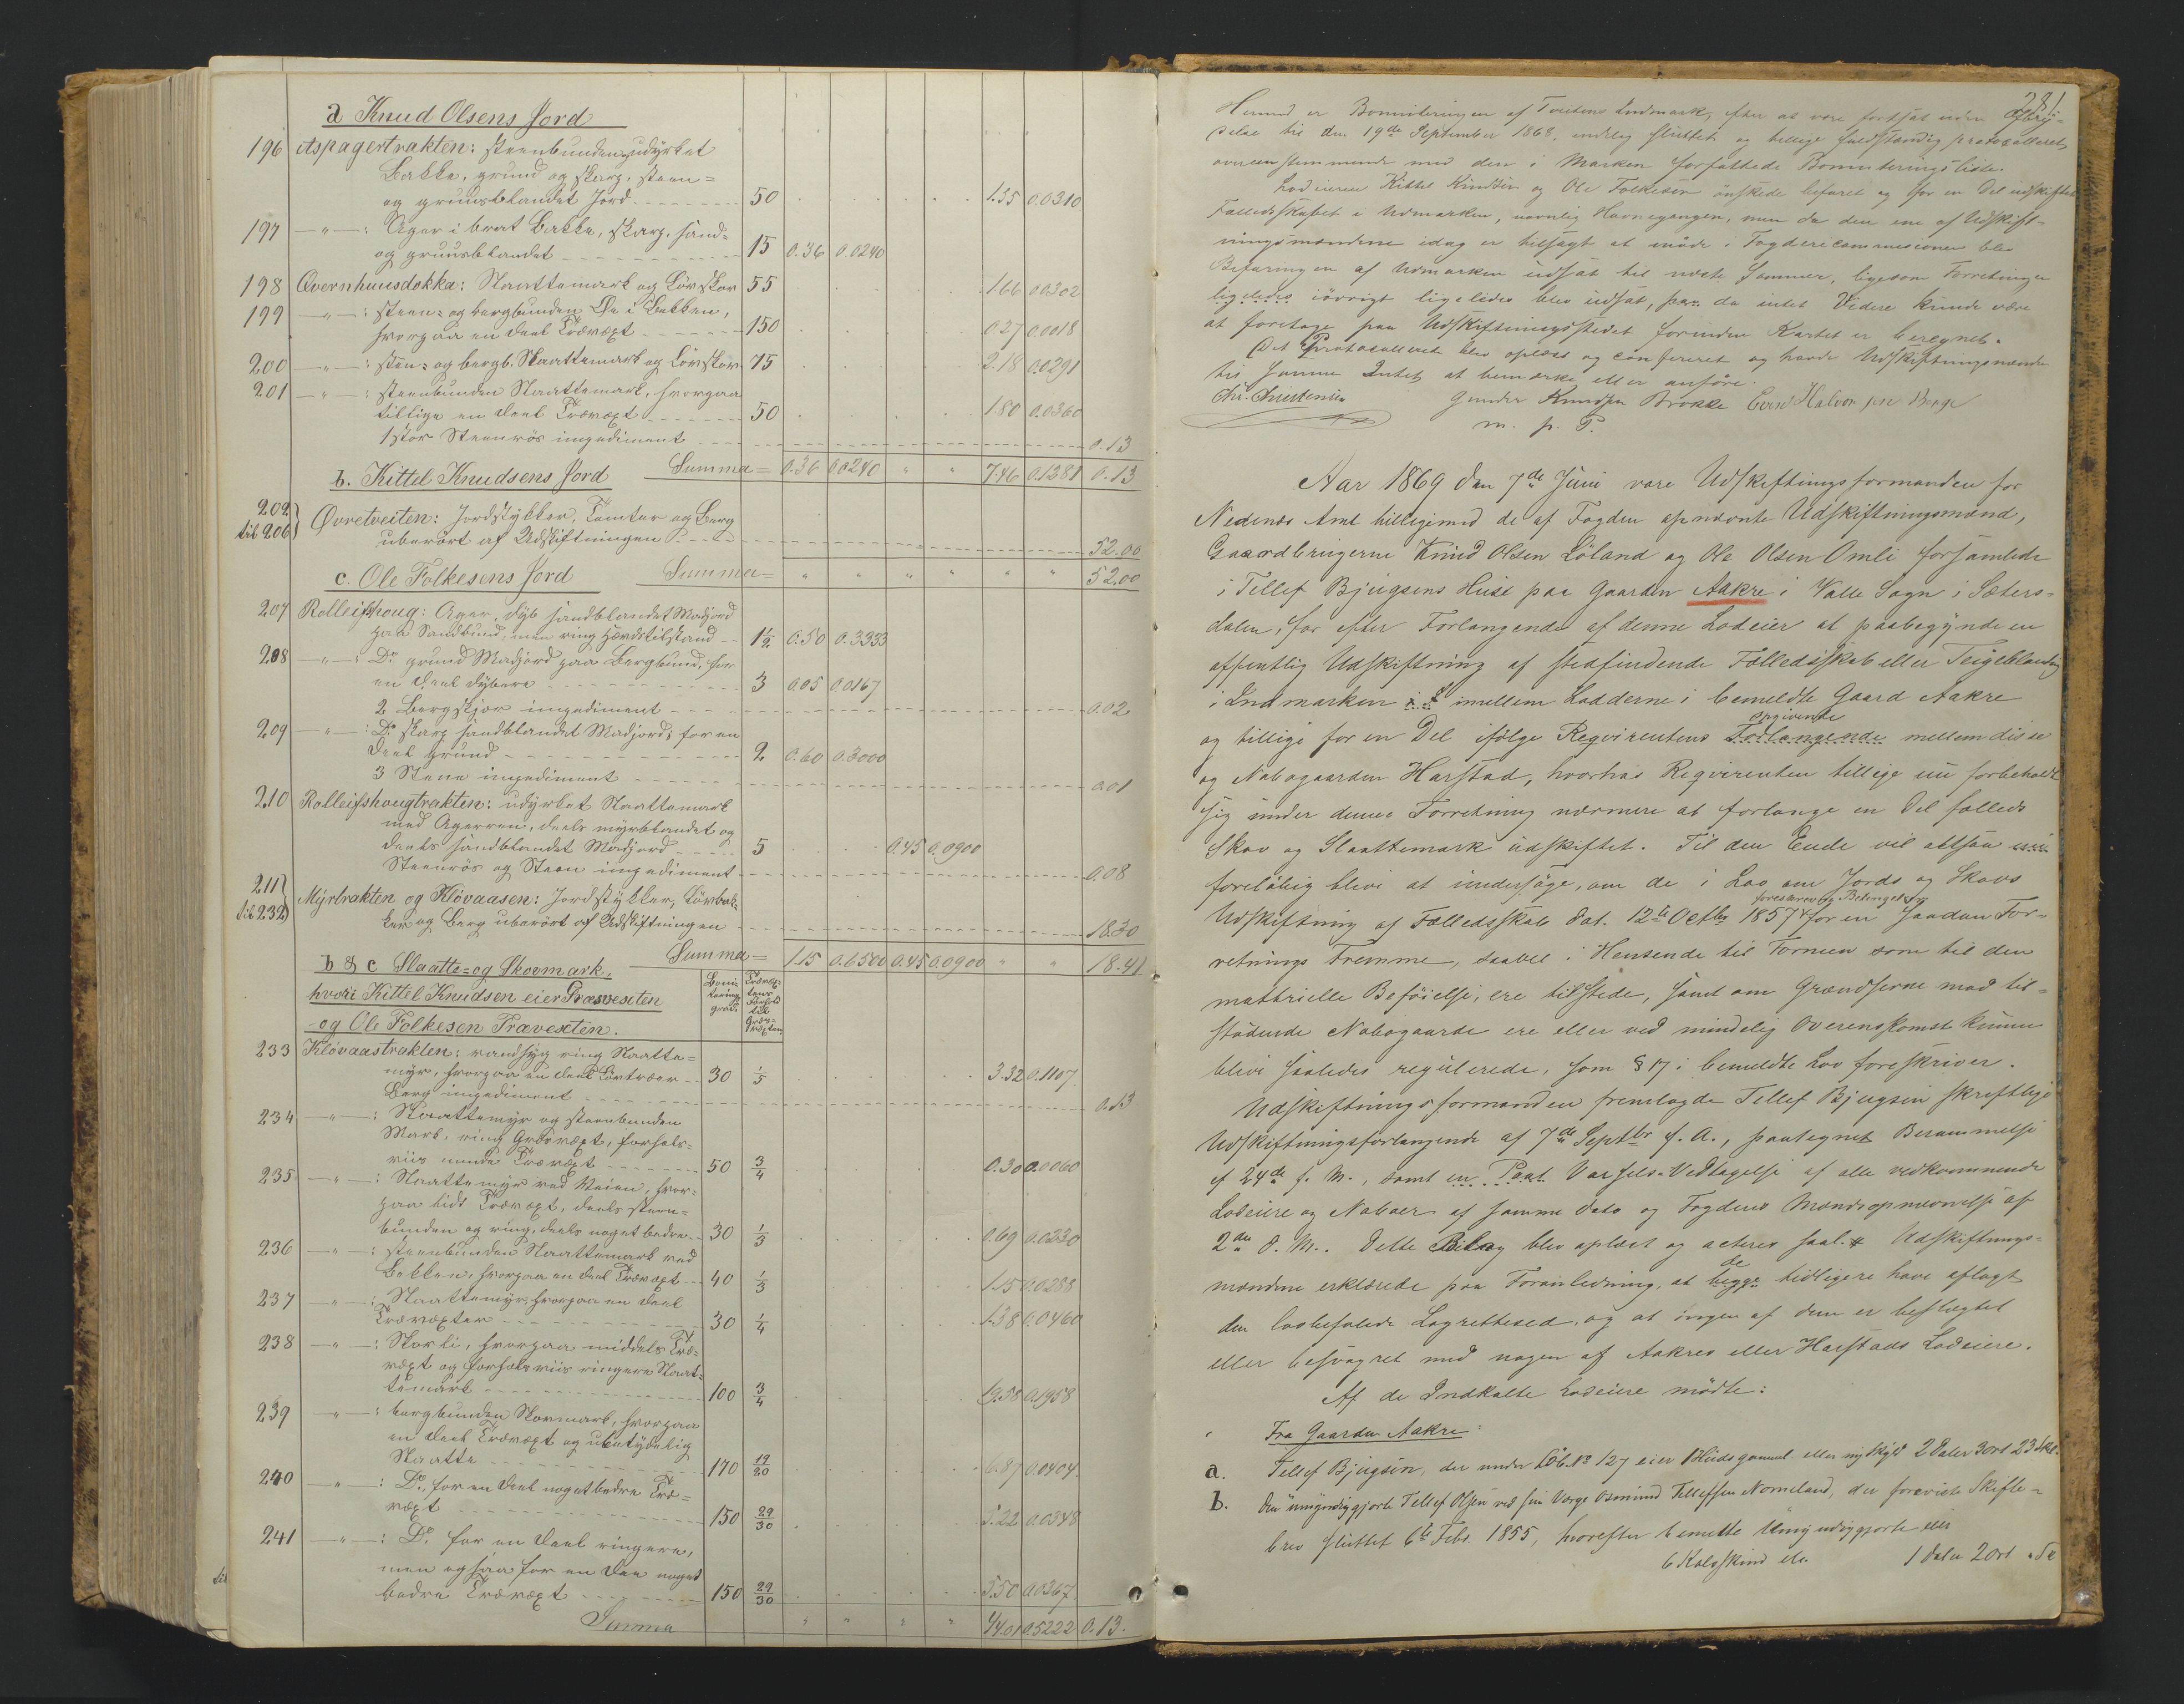 a Knud Olsens Jord
196 Aspagertrakten: steenbunden, udyrket
Bakke, grund og skarp, steen-
og gruusblandet Jord 50 1.55 0.0310
197 — " — : Ager i brat Bakke, skarp, sand-
og gruusblandet 15 0.36 0.0240
198 Qvernhuusdokka: Slaattemark og Lövskov 55 1.66 0.0302
199 — " — : steen- og bergbunden Öe i Bækken,
hvorpaa en Deel Trævæxt 150 0.27 0.0018
200 — " — : sten- og bergb. Slaattemark og Lövskov 75 2.18 0.0291
201 — " — : steenbunden Slaattemark, hvorpaa
tillige en Deel Trævæxt 50 1.80 0.0360
1 stor Steenrös impediment 0.13
Summa = 0.36 0.0240 " " 7.46 0.1281 0.13
b. Kittel Knudsens Jord
202 til 206 Övretveiten: Jordstykker, Tomter og Berg
uberört af Udskiftningen 52.00
Summa = " " " " " " 52.00
c. Ole Folkesens Jord
207 Rolleifshoug: Ager, dyb sandblandet Madjord
paa Sandbund, men ring Hævdstilstand 1½ 0.50 0.3333
208 — " — : Do grund Madjord paa Bergbund, for
en Deel dybere 3 0.05 0.0167
2 Bergskjær impediment 0.02
209 — " — : Do skarp sandblandet Madjord, for en
Deel grund 2 0.60 0.3000
3 Stene impediment 0.01
210 Rolleifshougtrakten: udyrket Slaattemark
med Agerreen, deels myrblandet og
deels sandblandet Madjord 5 0.45 0.0900
Steenrös og Steen impediment 0.08
211 til 232 Myrtrakten og Klövaasen: Jordstykker, Lövbak-
ker og Berg uberört af Udskiftningen 18.30
Summa = 1.15 0.6500 0.45 0.0900 " " 18.41
b & c Slaatte- og Skovmark,
hvori Kittel Knudsen eier Græsvexten
og Ole Folkesen Trævexten.
233 Klövaastrakten: vandsyg ring Slaatte-
myr, hvorpaa en Deel Lövtræer 30 1/5 3.32 0.1107
Berg impediment 0.13
234 — " — : Slaattemyr og steenbunden
Mark, ring Græsvæxt, forhols-
viis mindre Trævæxt 50 3/4 0.30 0.0060
235 — " — : Slaattemyr ved Veien, hvor-
paa lidt Trævæxt, deels steen-
bunden og ring, deels noget bedre 30 1/5 0.69 0.0230
236 — " — : steenbunden Slaattemark ved
Bækken, hvorpaa en Deel Trævæxt 40 1/3 1.15 0.0288
237 — " — : Slaattemyr, hvorpaa en Deel
Trævæxter 30 1/4 1.38 0.0460
238 — " — : Skovli, hvorpaa middels Træ-
væxt og forholsviis ringere Slaat-
temark 100 3/4 19.58 0.1958
239 — " — : bergbunden Skovmark, hvorpaa
en Deel Trævæxt og ubetydelig
Slaatte 170 19/20 6.87 0.0404
240 — " — : Do, for en Deel noget bedre Træ-
væxt 150 29/30 5.22 0.0348
241 — " — : Do for en Deel ringere,
men ogsaa for en Deel noget
bedre Trævæxt 150 29/30 5.50 0.0367
Summa " " " " 44.01 0.5222 0.13
281
Hermed er Bonniteringen af Tveitens Indmark, efter at være fortsat uden Afbry-
delse til den 19de September 1868, endelig sluttet og tillige fuldstændig protocolleret,
overeenstemmende med den i Marken forfattede Bonniteringsliste.
Lodeierne Kittel Knudsen og Ole Folkesen önskede befaret og for en Del udskiftet
Fælledsskabet i Udmarken, navnlig Havnegangen, men da den ene af Udskift-
ningsmændene idag er tilsagt at möde i Fogdericommissionen blev
Befaringen af Udmarken udsat til næste Sommer, ligesom Forretningen
ligeledes iövrigt ligeledes blev udsat, da intet Videre kunde være
at foretage paa Udskiftningsstedet forinden Kartet er beregnet.
Det Protocollerede blev oplæst og confereret og havde Udskiftningsmændene
til samme Intet at bemærke eller anföre.
Chr. Christensen Gunder Knudsen Brokke Even Halvorsen Berge
m. p. P.
Aar 1869 den 7de Juni vare Udskiftningsformanden for
Nedenes Amt tilligemed de af Fogden opnævnte Udskiftningsmænd,
Gaardbrugerne Knud Olsen Löland og Ole Olsen Omli forsamlede
i Tellef Bjugsens Huse paa Gaarden Aakre i Valle Sogn i Sæters-
dalen, for efter Forlangende af denne Lodeier at paabegynde en
offentlig Udskiftning af stedfindende Fælledsskab eller Teigeblanding
i Indmarken imellem Lodderne i bemeldte Gaard Aakre
og tillige for en Del ifölge Reqvirentens Forlangende opgivende mellem disse
og Nabogaarden Harstad, hvorhos Reqvirenten tillige nu forbeholdt
sig under denne Forretning nærmere at forlange en Del fælleds
Skov og Slaattemark udskiftet. Til den Ende vil altsaa
foreløbig blive at undersöge, om de i Lov om Jords og Skovs
Udskiftning af Fælledsskab dat. 12te Octbr 1857 foreskrevne Betingelser for en saadan For-
retnings Fremme, saavel i Hensende til Formen som til den
materielle Beföielse, ere tilstede, samt om Grændserne mod til-
stödende Nabogaarde ere eller ved mindelig Overenskomst kunne
blive saaledes regulerede, som § 17 i bemeldte Lov foreskriver.
Udskiftningsformanden fremlagde Tellef Bjugsens skriftlige
Udskiftningsforlangende af 7de Septbr f. A., paategnet Berammelse
af 24de f. M., samt en Paat. Varsels-Vedtagelse af alle vedkommende
Lodeiere og Naboer af samme Dato og Fogdens Mandsopnævnelse af
2den d. M.. Dette Bilag blev oplæst og acteres saal. Udskiftnings-
mændene erklærede paa Foranledning, at de begge tidligere have aflagt
den lovbefalede Lagrettesed, og at ingen af dem er beslægtet
eller besvogret med nogen af Aakres eller Harstads Lodeiere.
Af de Indkaldte Lodeiere mödte:
Fra Gaarden Aakre:
a. Tellef Bjugsen, der under Löb.No 127 eier 1 Huds gammel eller ny Skyld 2 Daler 3 ort 23 Skl.
b. Den umyndiggjorte Tellef Olsen ved sin Værge Osmund Tellefsen Nomeland, der foreviste Skifte-
brev sluttet 6te Febr. 1855, hvorefter bemeldte Umyndiggjorte eier
6 Kalvskind 1 Daler 2 Ort